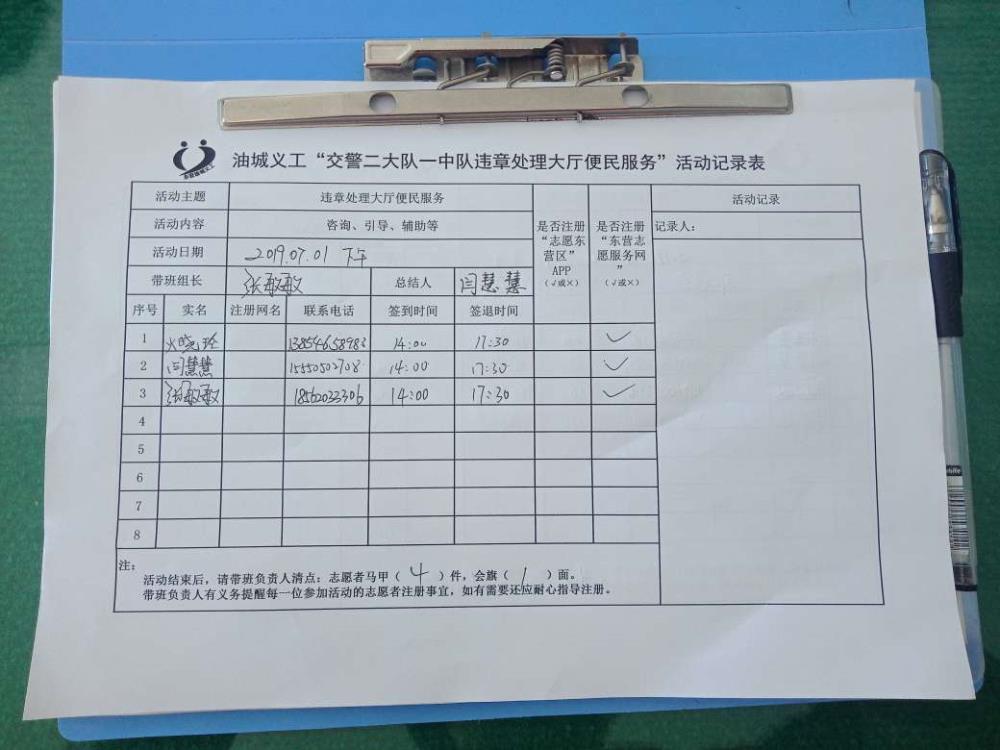 油城义工“交警二大队一中队违章处理大厅便民服务”活动记录表
活动主题 违章处理大厅便民服务 是否注册“志愿东营区”APP（√或×） 是否注册“东营志愿服务网”（√或×） 活动记录
活动内容 咨询、引导、辅助等 记录人：
活动日期 2019.07.01 下午
带班组长 张敏敏 总结人 闫慧慧
序号 实名 注册网名 联系电话 签到时间 签退时间
1 晓玲 13854658983 14:00 17:30 ✓
2 闫慧慧 15550502708 14:00 17:30 ✓
3 张敏敏 18562033306 14:00 17:30 ✓
4
5
6
7
8
注：
活动结束后，请带班负责人清点：志愿者马甲（ 4 ）件，会旗（ 1 ）面。
带班负责人有义务提醒每一位参加活动的志愿者注册事宜，如有需要还应耐心指导注册。